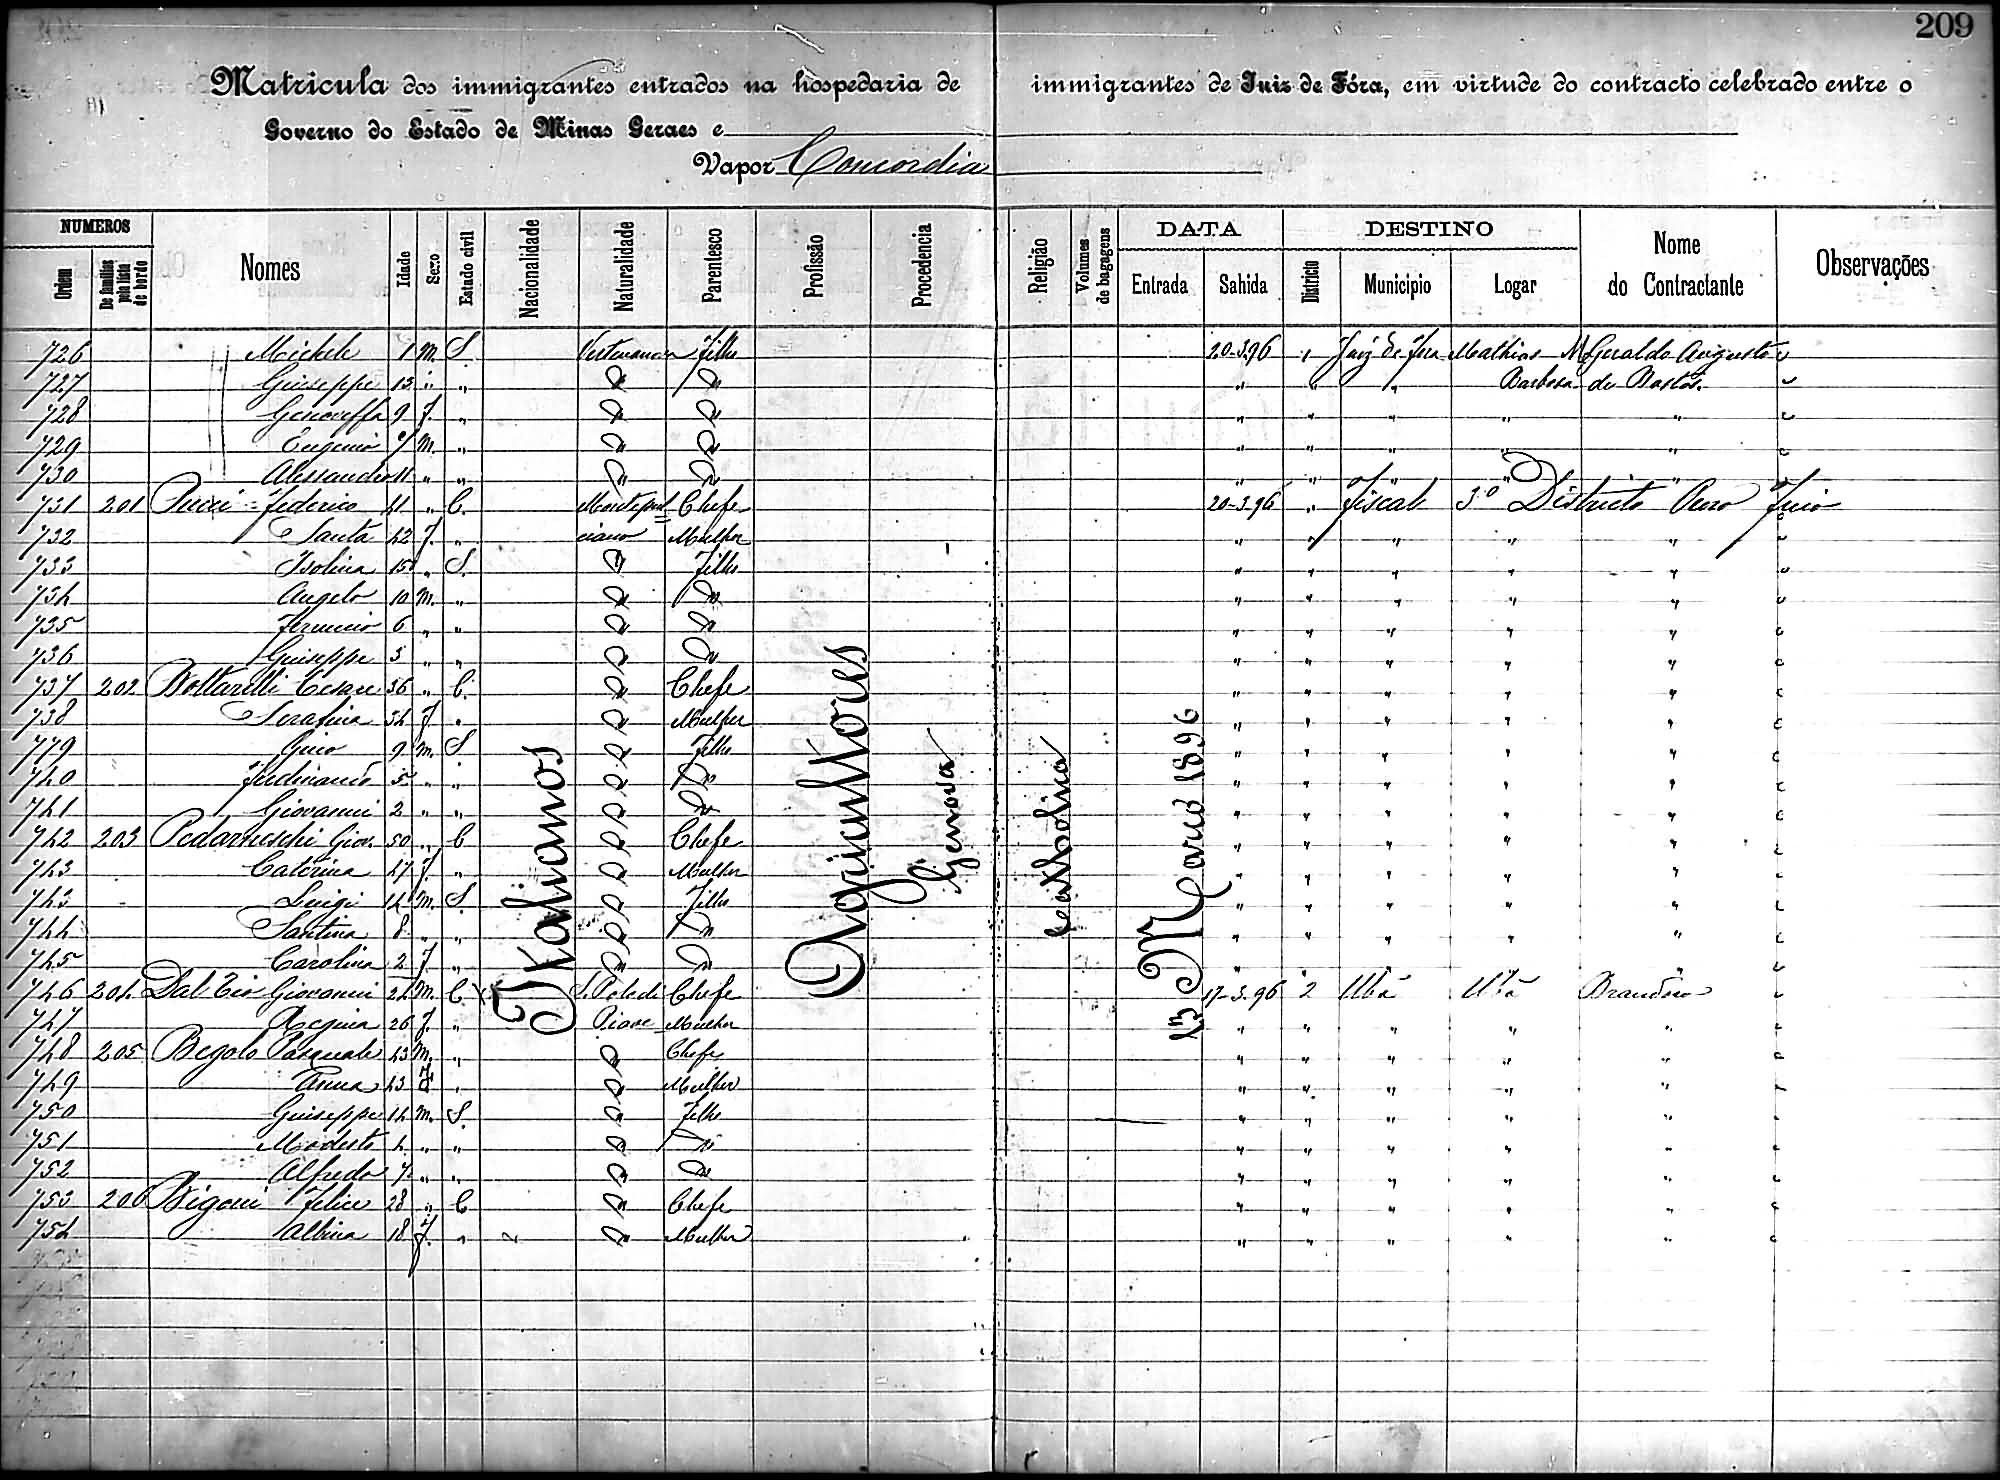 209
Matricula dos immigrantes entrados na hospedaria de immigrantes de Juiz de Fóra, em virtude do contracto celebrado entre o
Governo do Estado de Minas Geraes e
Vapor Concordia
NUMEROS
Ordem
De familias pela lista de bordo
Nomes
Idade
Sexo
Estado civil
Nacionalidade
Naturalidade
Parentesco
Profissão
Procedencia
Religião
Volumes de bagagens
DATA
Entrada
Sahida
DESTINO
Districto
Municipio
Logar
Nome do Contractante
Observações
Italianos
Agricultores
Genova
Catholica
13 Março 1896
726 Michele 1 M. S. Filho 20-3-96 " Juiz de Fora Mathias Geraldo Augusto
727 Giuseppe 13 " " D D " " " Barbosa de Bastos.
728 Genoveffa 9 F. " D D " " " " "
729 Eugenio 7 M. " D D " " " " "
730 Alessandro 11 " " D D " " " " "
731 201 Pucci Federico 41 " C. Montepul= Chefe 20-3-96 " Fiscal 3º Districto Ouro Fino
732 Santa 42 F. " ciano Mulher " " " " "
733 Isolina 15 " S. D Filha " " " " "
734 Angelo 10 M. " D D " " " " "
735 Ferruccio 6 " " D D " " " " "
736 Giuseppe 3 " " D D " " " " "
737 202 Bottarelli Cesare 36 " C. D Chefe " " " " "
738 Serafina 34 F " D Mulher " " " " "
779 Gino 9 M. S D Filho " " " " "
740 Ferdinando 5 " " D D " " " " "
741 Giovanni 2 " " D D " " " " "
742 203 Pedarneschi Giov. 50 " C D Chefe " " " " "
743 Caterina 47 F. " D Mulher " " " " "
743 Luigi 14 M. S. D Filho " " " " "
744 Santina 8 " " D D " " " " "
745 Carolina 2 F. " D D " " " " "
746 204 Dal Cio Giovanni 24 M. C. S. Polo di Chefe 17-3-96 2 Ubá Ubá Brandão
747 Regina 26 F. " Piave Mulher " " " " "
748 205 Begolo Pasquale 43 M. " D Chefe " " " " "
749 Anna 43 F " D Mulher " " " " "
750 Giuseppe 14 M. S. D Filho " " " " "
751 Modesto 4 " " D D " " " " "
752 Alfredo 7 " " D D " " " " "
753 206 Bigoni Felice 28 " C D Chefe " " " " "
754 Albina 18 F. " D Mulher " " " " "